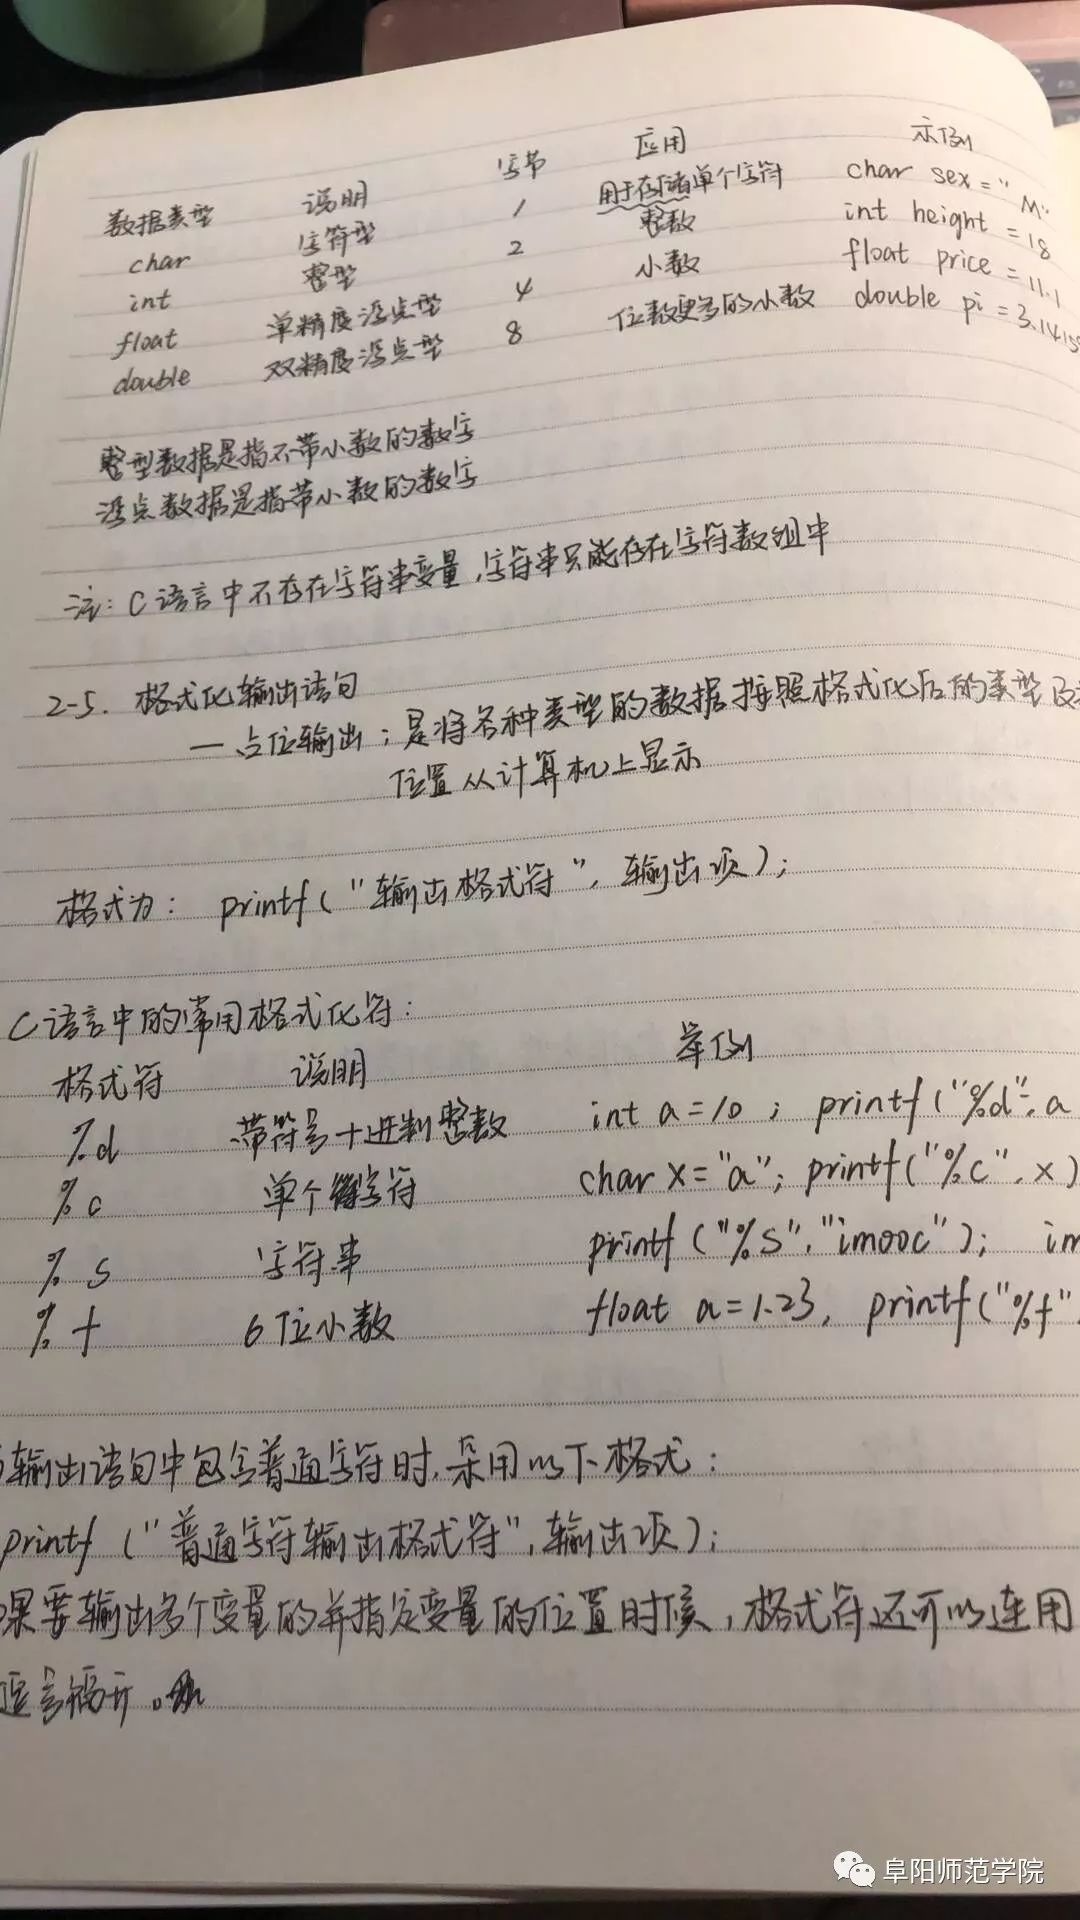 数据类型 说明 字节 应用 示例
char 字符型 1 用于存储单个字符 char sex = "M"
int 整型 2 整数 int height = 18
float 单精度浮点型 4 小数 float price = 11.1
double 双精度浮点型 8 位数更多的小数 double pi = 3.1415
整型数据是指不带小数的数字
浮点数据是指带小数的数字
注: C语言中不存在字符串变量,字符串只能存在字符数组中
2-5. 格式化输出语句
— 占位输出;是将各种类型的数据按照格式化后的类型及
位置从计算机上显示
格式为: printf("输出格式符", 输出项);
C语言中的常用格式化符:
格式符 说明 举例
%d 带符号十进制整数 int a=10; printf("%d", a
%c 单个字符 char x="a"; printf("%c", x)
%s 字符串 printf("%s","imooc"); im
%f 6位小数 float a=1.23, printf("%f"
输出语句中包含普通字符时,采用以下格式:
printf ("普通字符输出格式符",输出项);
果要输出多个变量的并指定变量的位置时候,格式符还可以连用
逗号隔开。
阜阳师范学院